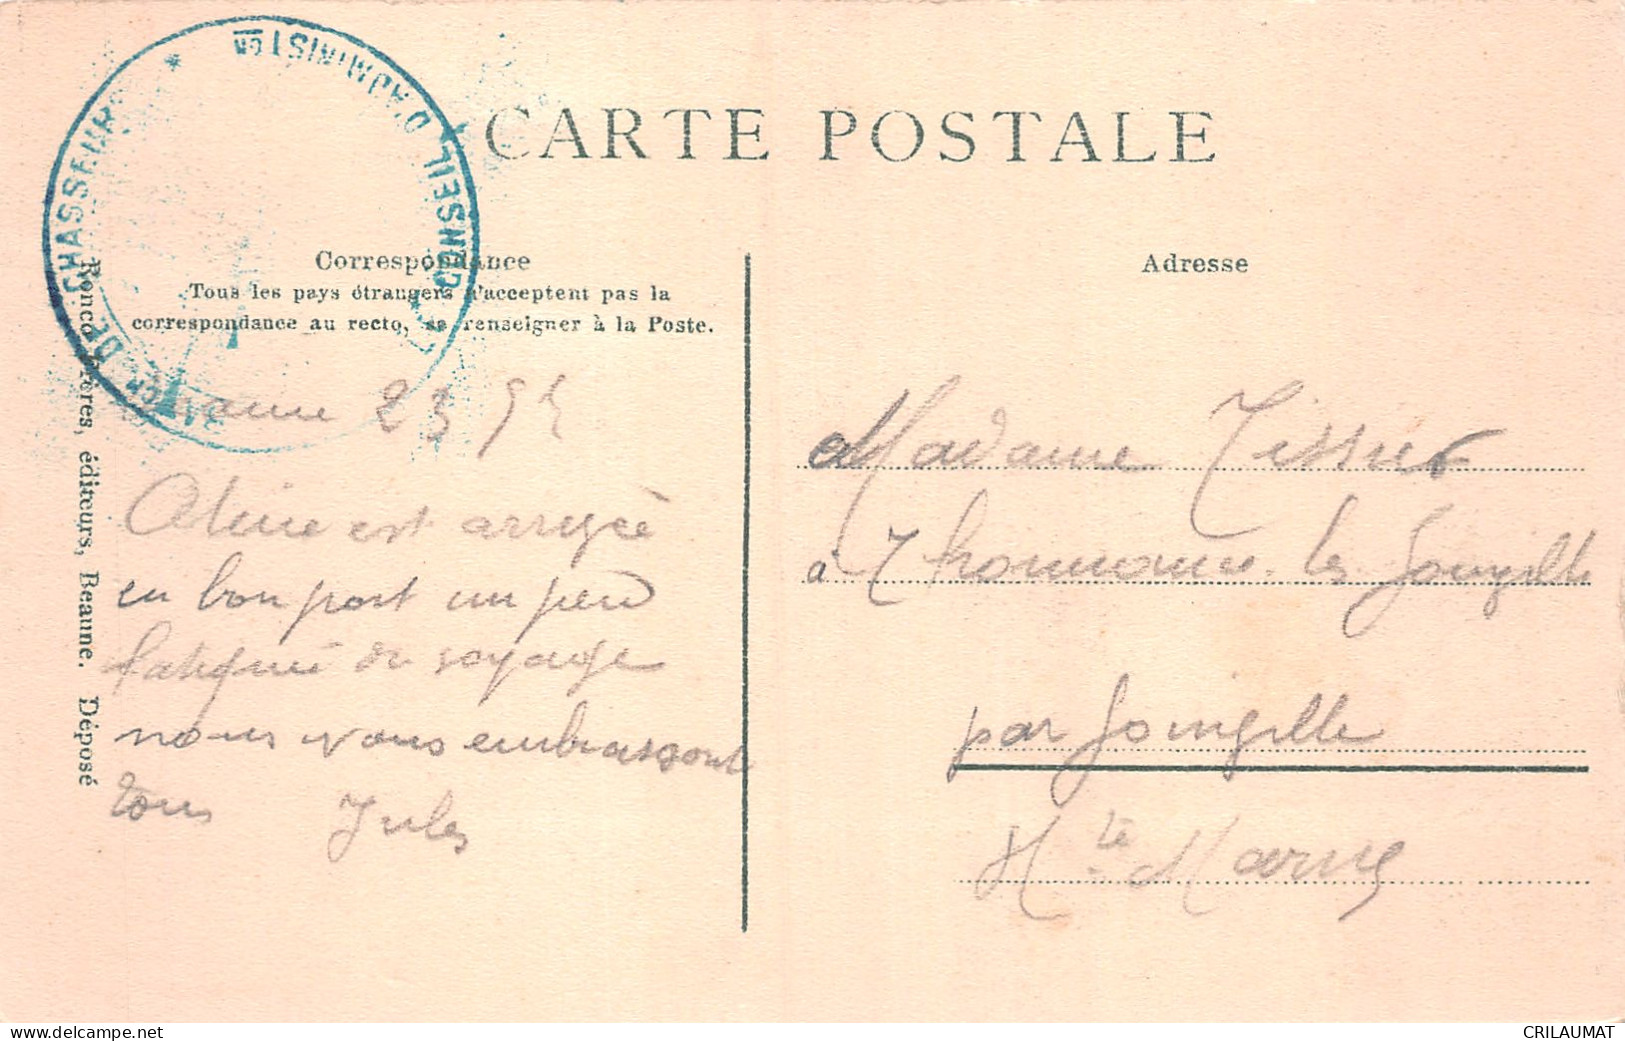 CARTE POSTALE
Correspondance
Tous les pays étrangers n'acceptent pas la
correspondance au recto, se renseigner à la Poste.
Adresse
CONSEIL D'ADMINISTON
DE CHASSEURS
Ronco Frères, éditeurs, Beaune. Déposé
23
est arrivée
en bon port un peu
fatiguée du voyage
nous vous embrassont
tous Jules
Madame Tissier
à Thonnance les Joinville
par Joinville
Hte Marne
www.delcampe.net
CRILAUMAT